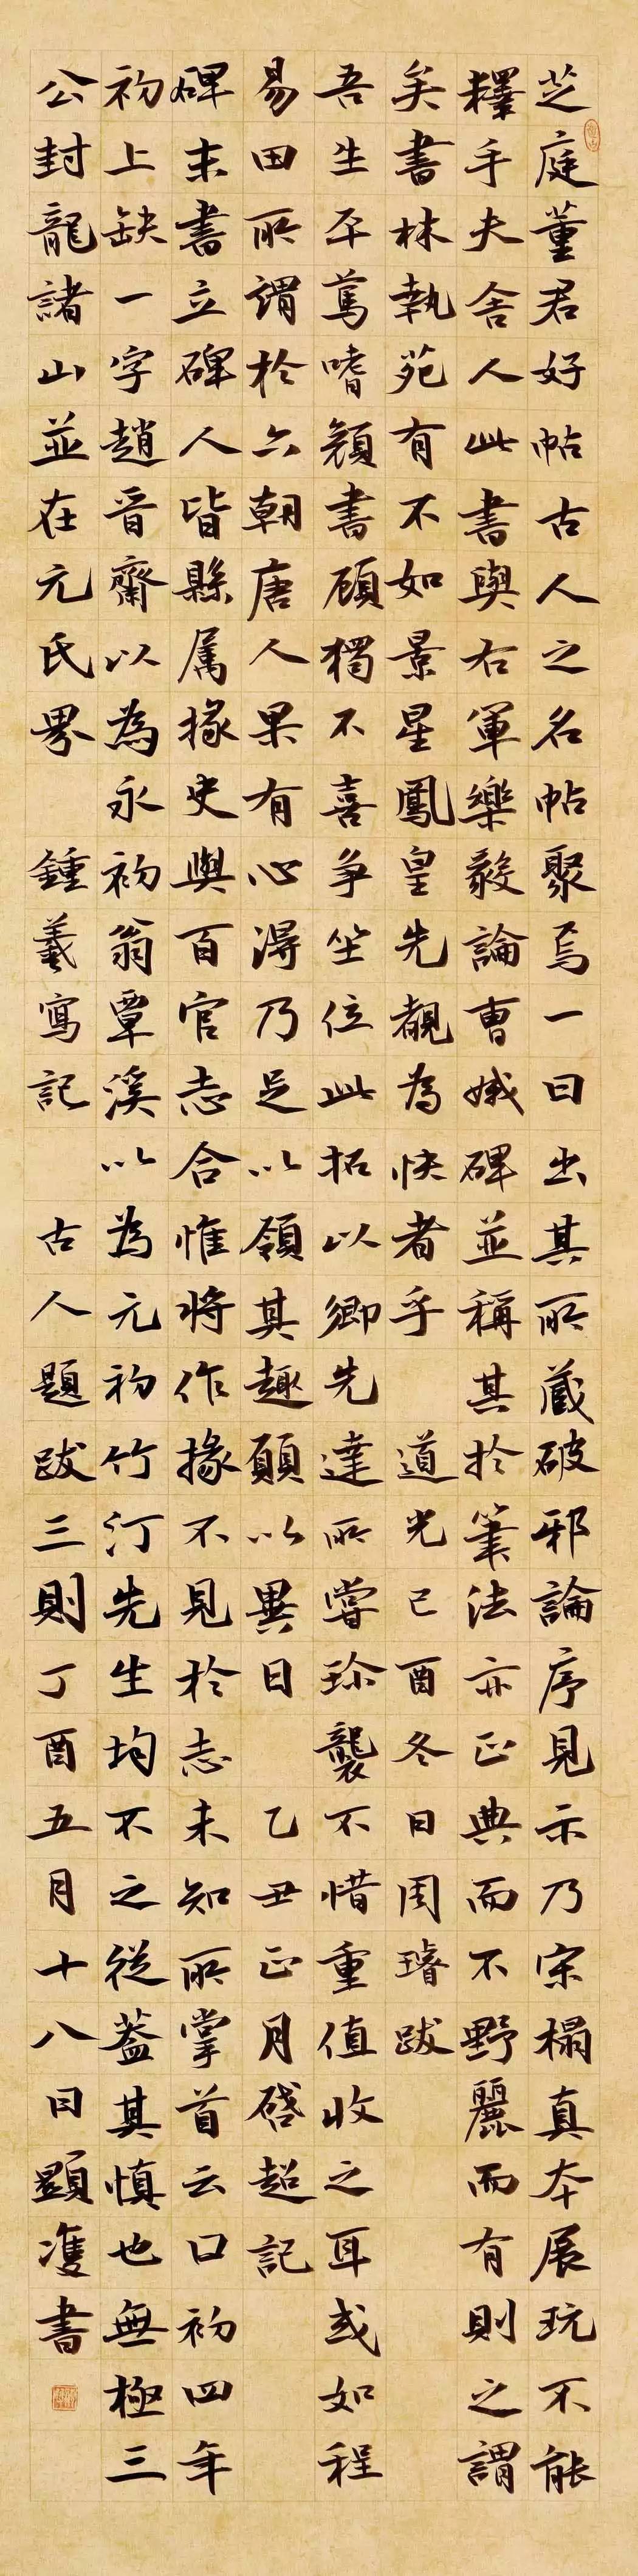 芝庭董君好帖古人之名帖聚焉一日出其所藏破邪論序見示乃宋榻真本展玩不能
釋手夫舍人此書與右軍樂毅論曹娥碑並稱其於筆法亦正典而不野麗而有則之謂
矣書林執苑有不如景星鳳皇先覩為快者乎 道光己酉冬日周璿跋
吾生平篤嗜顏書顧獨不喜爭坐位此拓以卿先達所嘗珎襲不惜重值收之耳或如程
易田所謂於六朝唐人果有心得乃足以領其趣願以異日 乙丑正月啓超記
碑末書立碑人皆縣属掾史與百官志合惟將作掾不見於志未知所掌首云口初四年
初上缺一字趙晉齋以為永初翁覃溪以為元初竹汀先生均不之從蓋其慎也無極三
公封龍諸山並在元氏界 鍾羲寫記 古人題跋三則丁酉五月十八日顯濩書